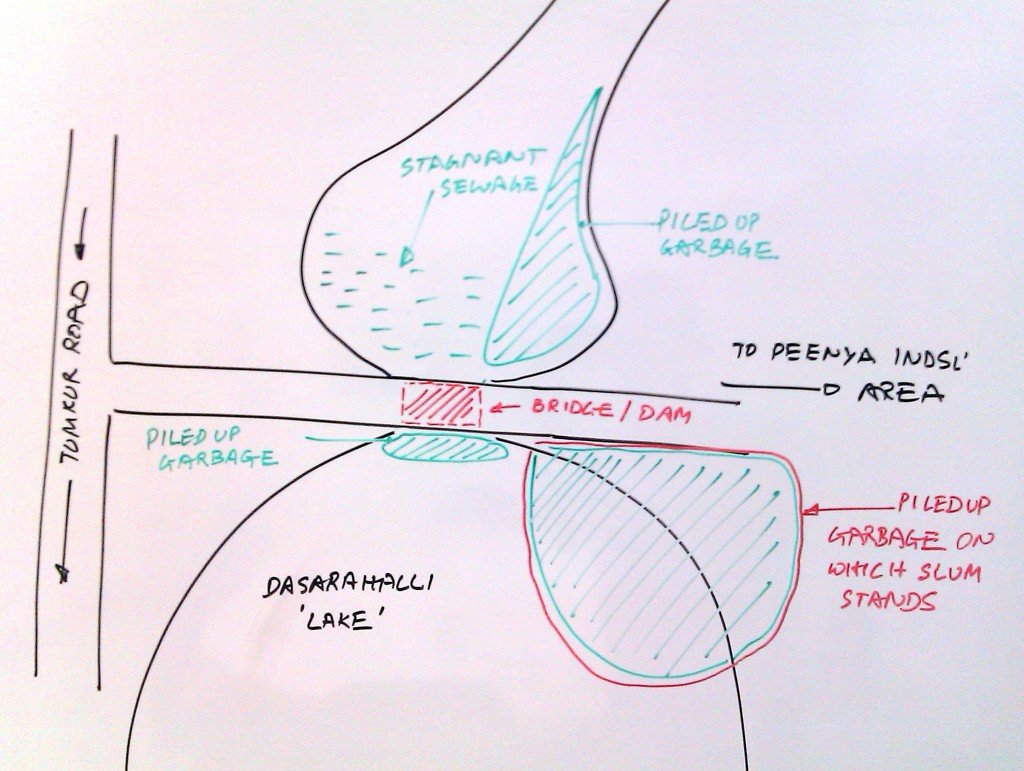 STAGNANT
SEWAGE
PILED UP
GARBAGE
TUMKUR ROAD
TO PEENYA INDSL'
AREA
BRIDGE/DAM
PILED UP
GARBAGE
PILED UP
GARBAGE ON
WHICH SLUM
STANDS
DASARAHALLI
'LAKE'